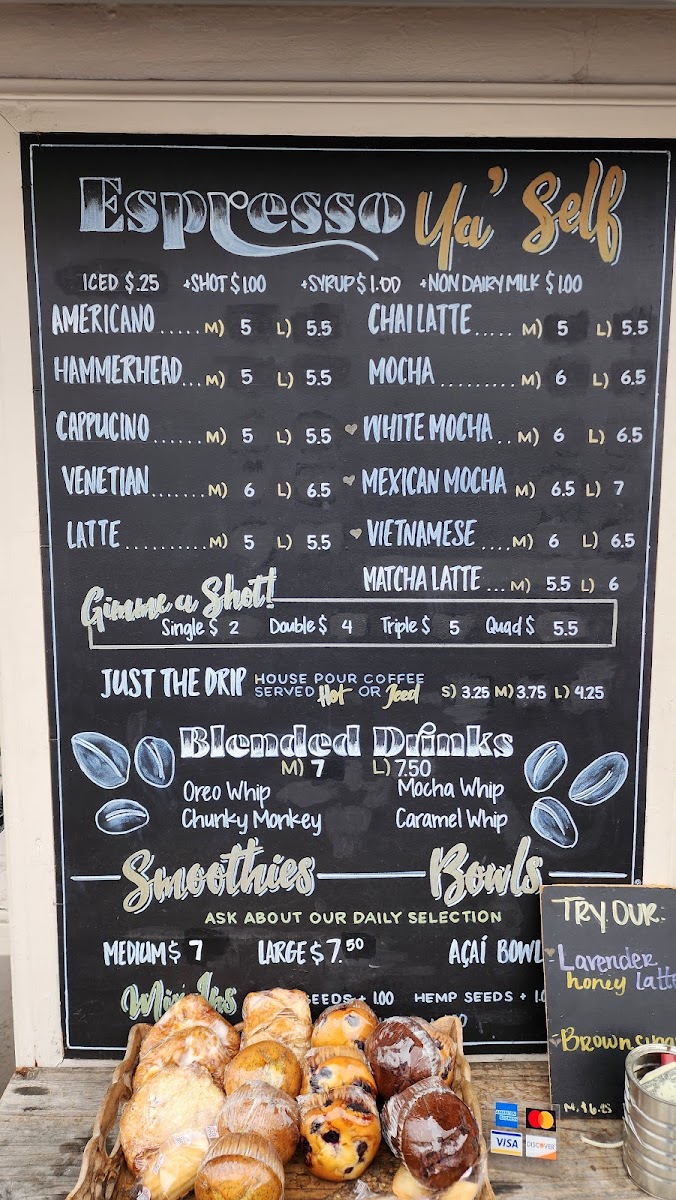 Espresso Ya' Self
ICED $.25 +SHOT $1.00 +SYRUP $1.00 +NON DAIRY MILK $1.00
AMERICANO ..... M) 5 L) 5.5
HAMMERHEAD... M) 5 L) 5.5
CAPPUCINO ...... M) 5 L) 5.5
VENETIAN ....... M) 6 L) 6.5
LATTE .......... M) 5 L) 5.5
CHAI LATTE ..... M) 5 L) 5.5
MOCHA ......... M) 6 L) 6.5
WHITE MOCHA .. M) 6 L) 6.5
MEXICAN MOCHA M) 6.5 L) 7
VIETNAMESE .... M) 6 L) 6.5
MATCHA LATTE ... M) 5.5 L) 6
Gimme a Shot!
Single $ 2 Double $ 4 Triple $ 5 Quad $ 5.5
JUST THE DRIP HOUSE POUR COFFEE
SERVED Hot OR Iced S) 3.25 M) 3.75 L) 4.25
Blended Drinks
M) 7 L) 7.50
Oreo Whip Mocha Whip
Chunky Monkey Caramel Whip
Smoothies Bowls
ASK ABOUT OUR DAILY SELECTION
MEDIUM $ 7 LARGE $ 7.50 AÇAÍ BOWL
SEEDS + 1.00 HEMP SEEDS +
TRY OUR:
Lavender
honey latte
Brown
AMERICAN EXPRESS
VISA DISCOVER